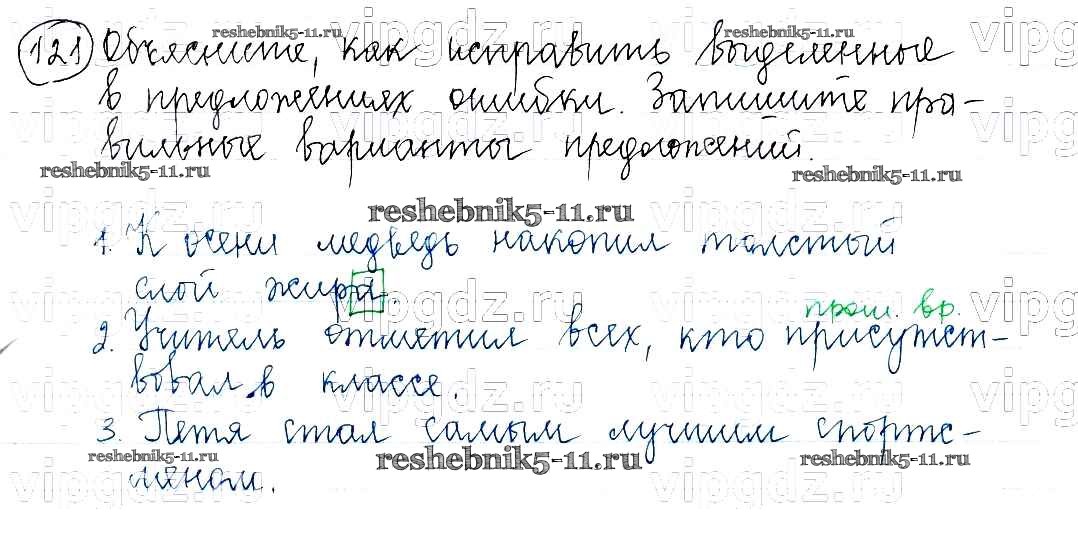 reshebnik5-11.ru reshebnik5-11.ru
121 Объясните, как исправить выделенные
в предложениях ошибки. Запишите пра-
вильные варианты предложений.
reshebnik5-11.ru reshebnik5-11.ru
reshebnik5-11.ru
1. К осени медведь накопил толстый
слой жира.
прош. вр.
2. Учитель отметил всех, кто присутст-
вовал в классе.
3. Петя стал самым лучшим спортс-
reshebnik5-11.ru reshebnik5-11.ru reshebnik5-11.ru
меном.